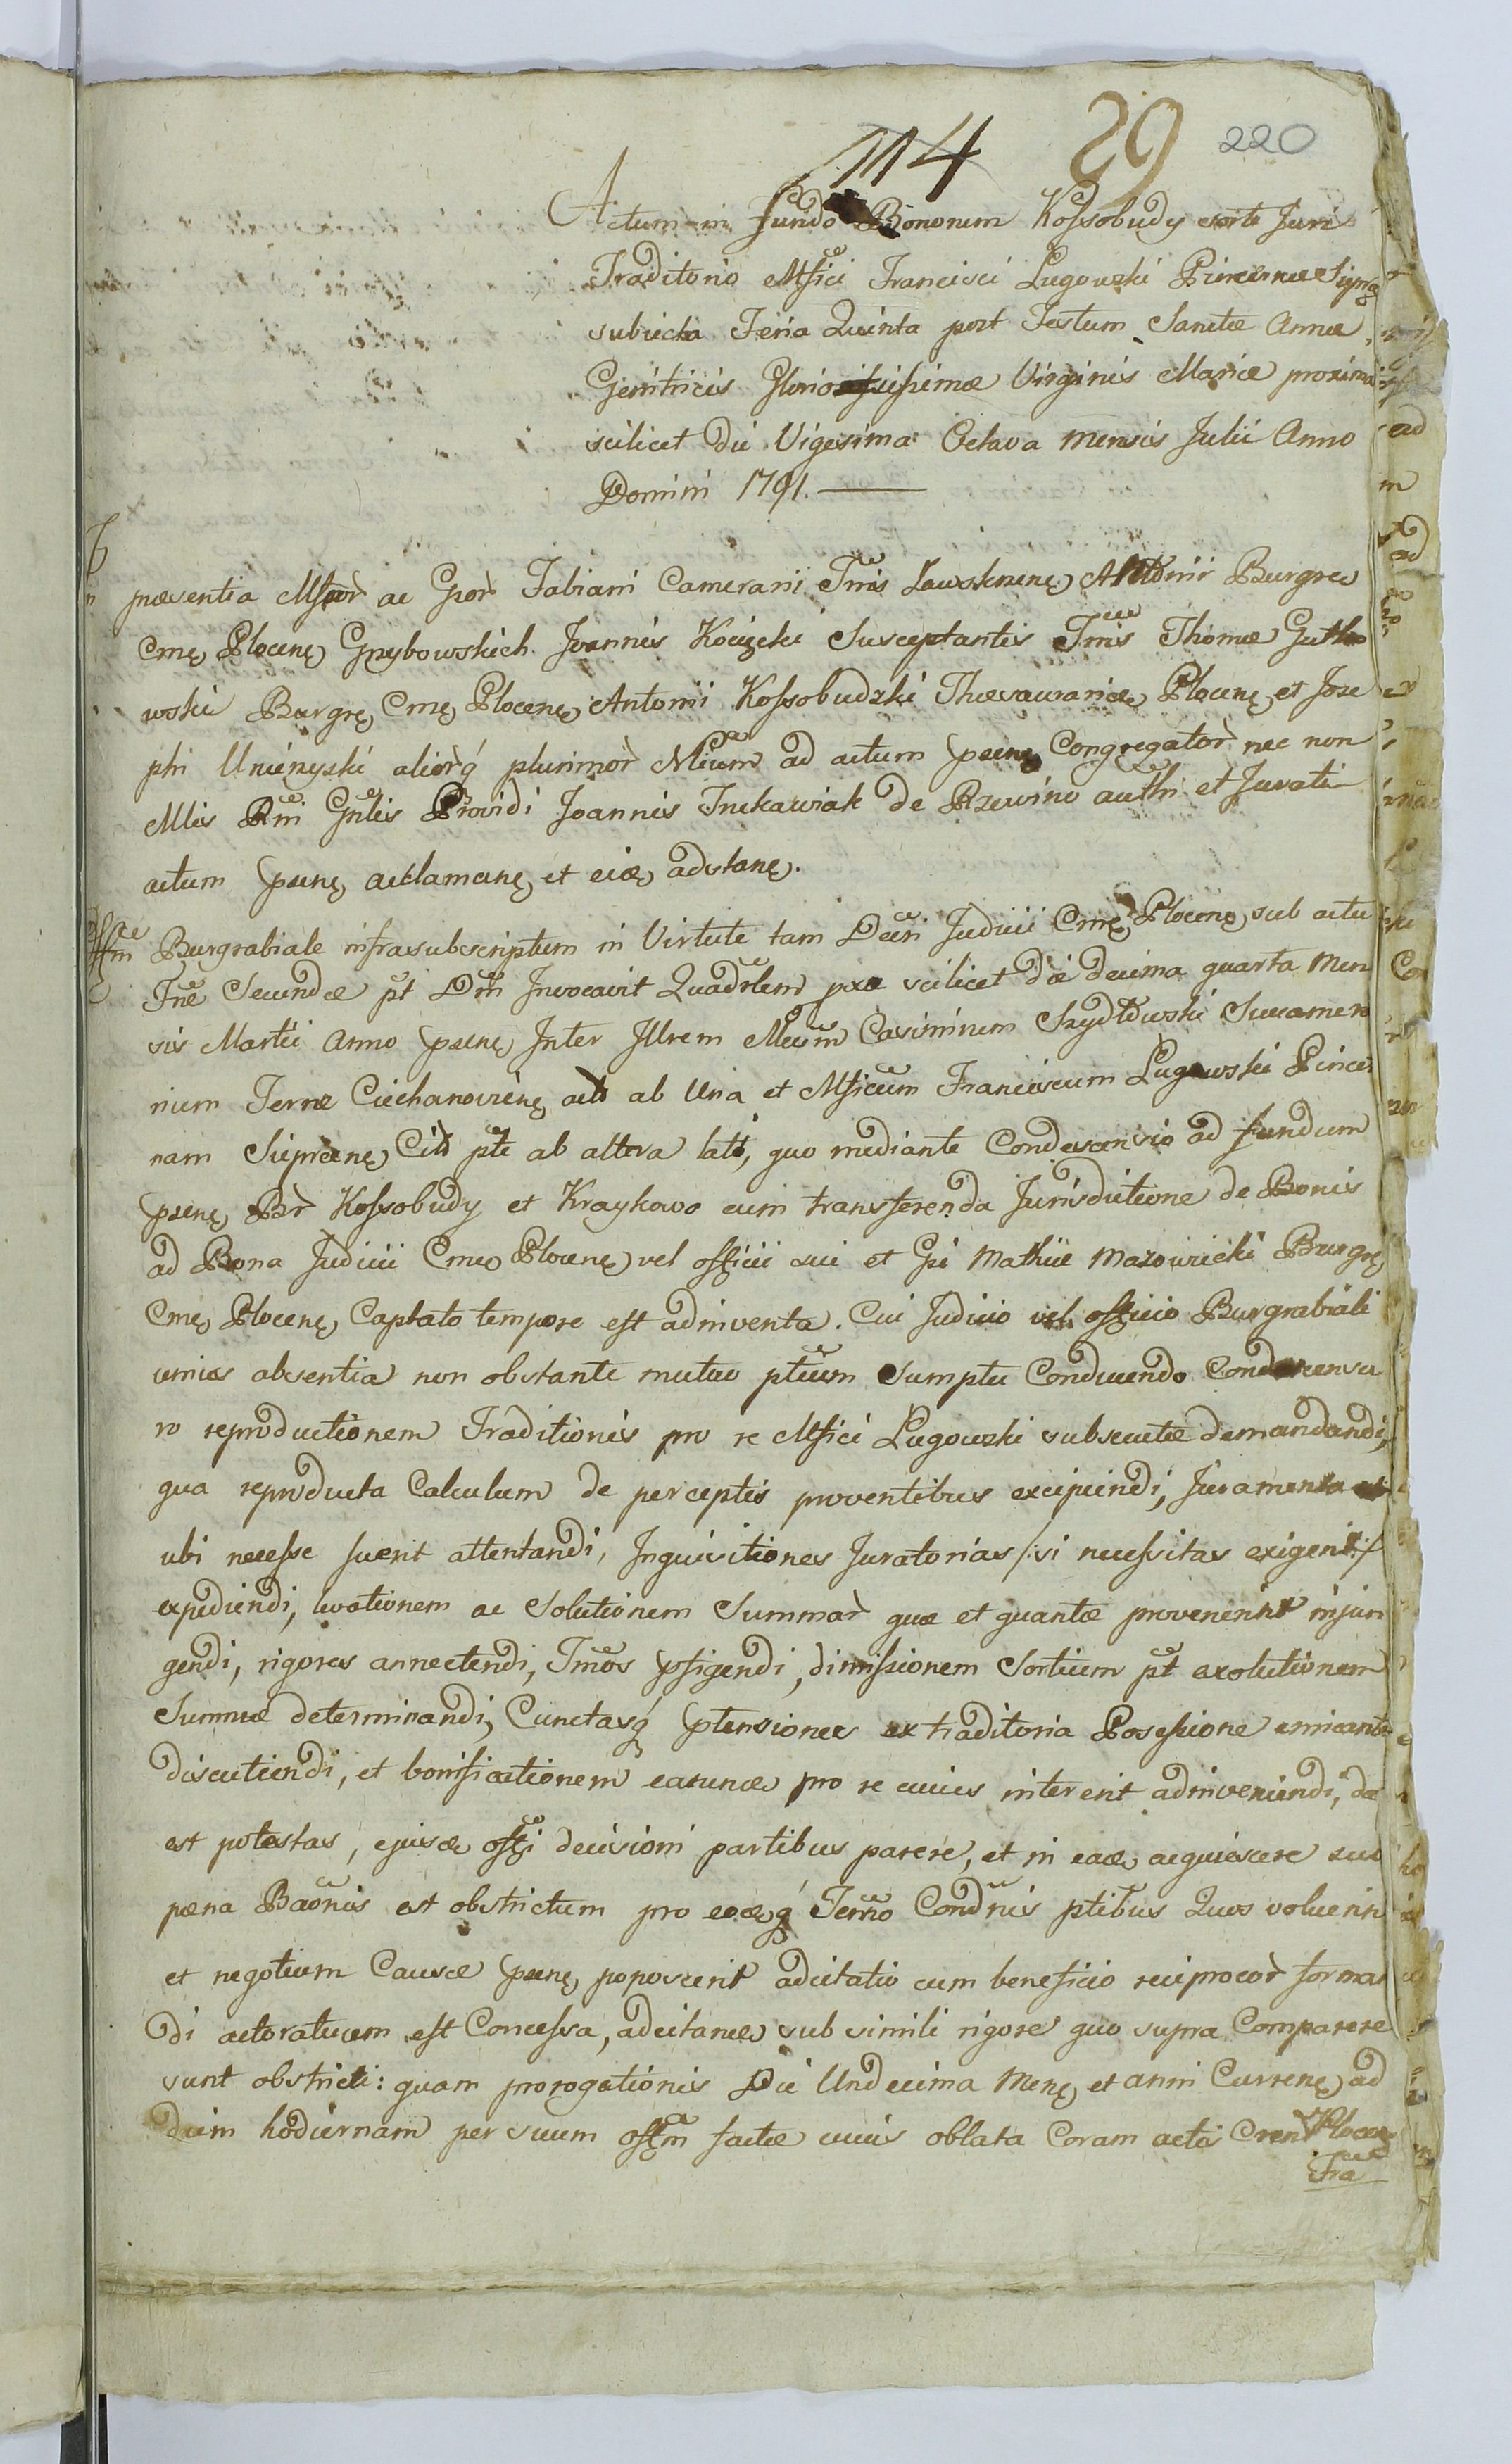 114 29 220
Actum in fundo Bonorum Kossobudy sorte Juri
Traditorio Mfici Francisci Lugowski Pincernæ Siprę
subjecta Feria Quinta post Festum Sanctæ Annæ
Genitricis Gloriosissimæ Virginis Mariæ proxima
scilicet die Vigesima Octava mensis Julii Anno
Domini 1791.
In præsentia Mfcor ac Gror Fabiani Camerarii Tris Zawskrnenę, Antonii Burgrę
Cmę Plocenę Grzybowskich Joannis Kocięcki Susceptantis Tmis Thomæ Gutko
wski Burgrę Cmę Plocenę Antonii Kossobudzki Thesaurariæ Plocenę et Jose
phi Unieryski aliorq plurimor Nlium ad actum psenę Congregator nec non
Mlis Rmi Gnlis Providi Joannis Inekawiak de Rzewino authi et Jurati
actum psenę acclamanę et eidę adstanę.
Offm Burgrabiale infrasubscriptum in Virtute tam Dcti Judicii Cmę Plocenę sub actu
Fræ Secundæ pt Dm Invocavit Quadrlem pxa scilicet die decima quarta Men
sis Martii Anno psenę Inter Illrem Mcum Casimirum Szydłowski Succamera
rium Terræ Ciechanovienę act ab Una et Mficum Franciscum Lugowski Pincer
nam Sieprcenę Cit pte ab altera lati, quo mediante Condescensio ad fundum
psenę Br Kossobudy et Kraykowo cum transferenda Jurisdictione de Bonis
ad Bona Judicii Cmę Plocenę vel officii sui et Gsi Mathiæ Mazowiecki Burgrę
Cmę Plocenę Captato tempore est adinventa. Cui Judicio vel officio Burgrabiali
unius absentia non obstante mutuo ptium Sumptu Conducendo Condescensu
ro reproductionem Traditionis pro re Mfici Lugowski subsecutæ demandandi,
qua reproducta Calculum de perceptis proventibus excipiendi, Juramenta
ubi necesse fuerit attentandi, Inquisitiones Juratorias /: si necessitas exigerit :/
expediendi, levationem ac Solutionem Summar quæ et quantæ provenerint injun
gendi, rigores annectendi, Tmos pfigendi, dimissionem Sortium pt exolutionem
Summæ determinandi, Cunctasq ptensiones ex traditoria Posessione emicantes
discutiendi, et bonificationem earundę pro re cuius intererit adinveniendi, da
est potestas, ejusdę offi decisioni partibus parere, et in eadę acquiescere sub
pæna Baonis est obstrictum pro eodęq Termo Condnis ptibus Quos voluerint
et negotium Causæ psenę poposcerit adcitatio cum beneficio reciprocor forman
di actoratuum est Concessa, adcitandę sub simili rigore quo supra Comparere
sunt obstricti: quam prorogationis Die Undecima Menę et anni Currenę ad
diem hodiernam per suum offm factæ cuius oblata Coram actis Cren Plocen
Fra